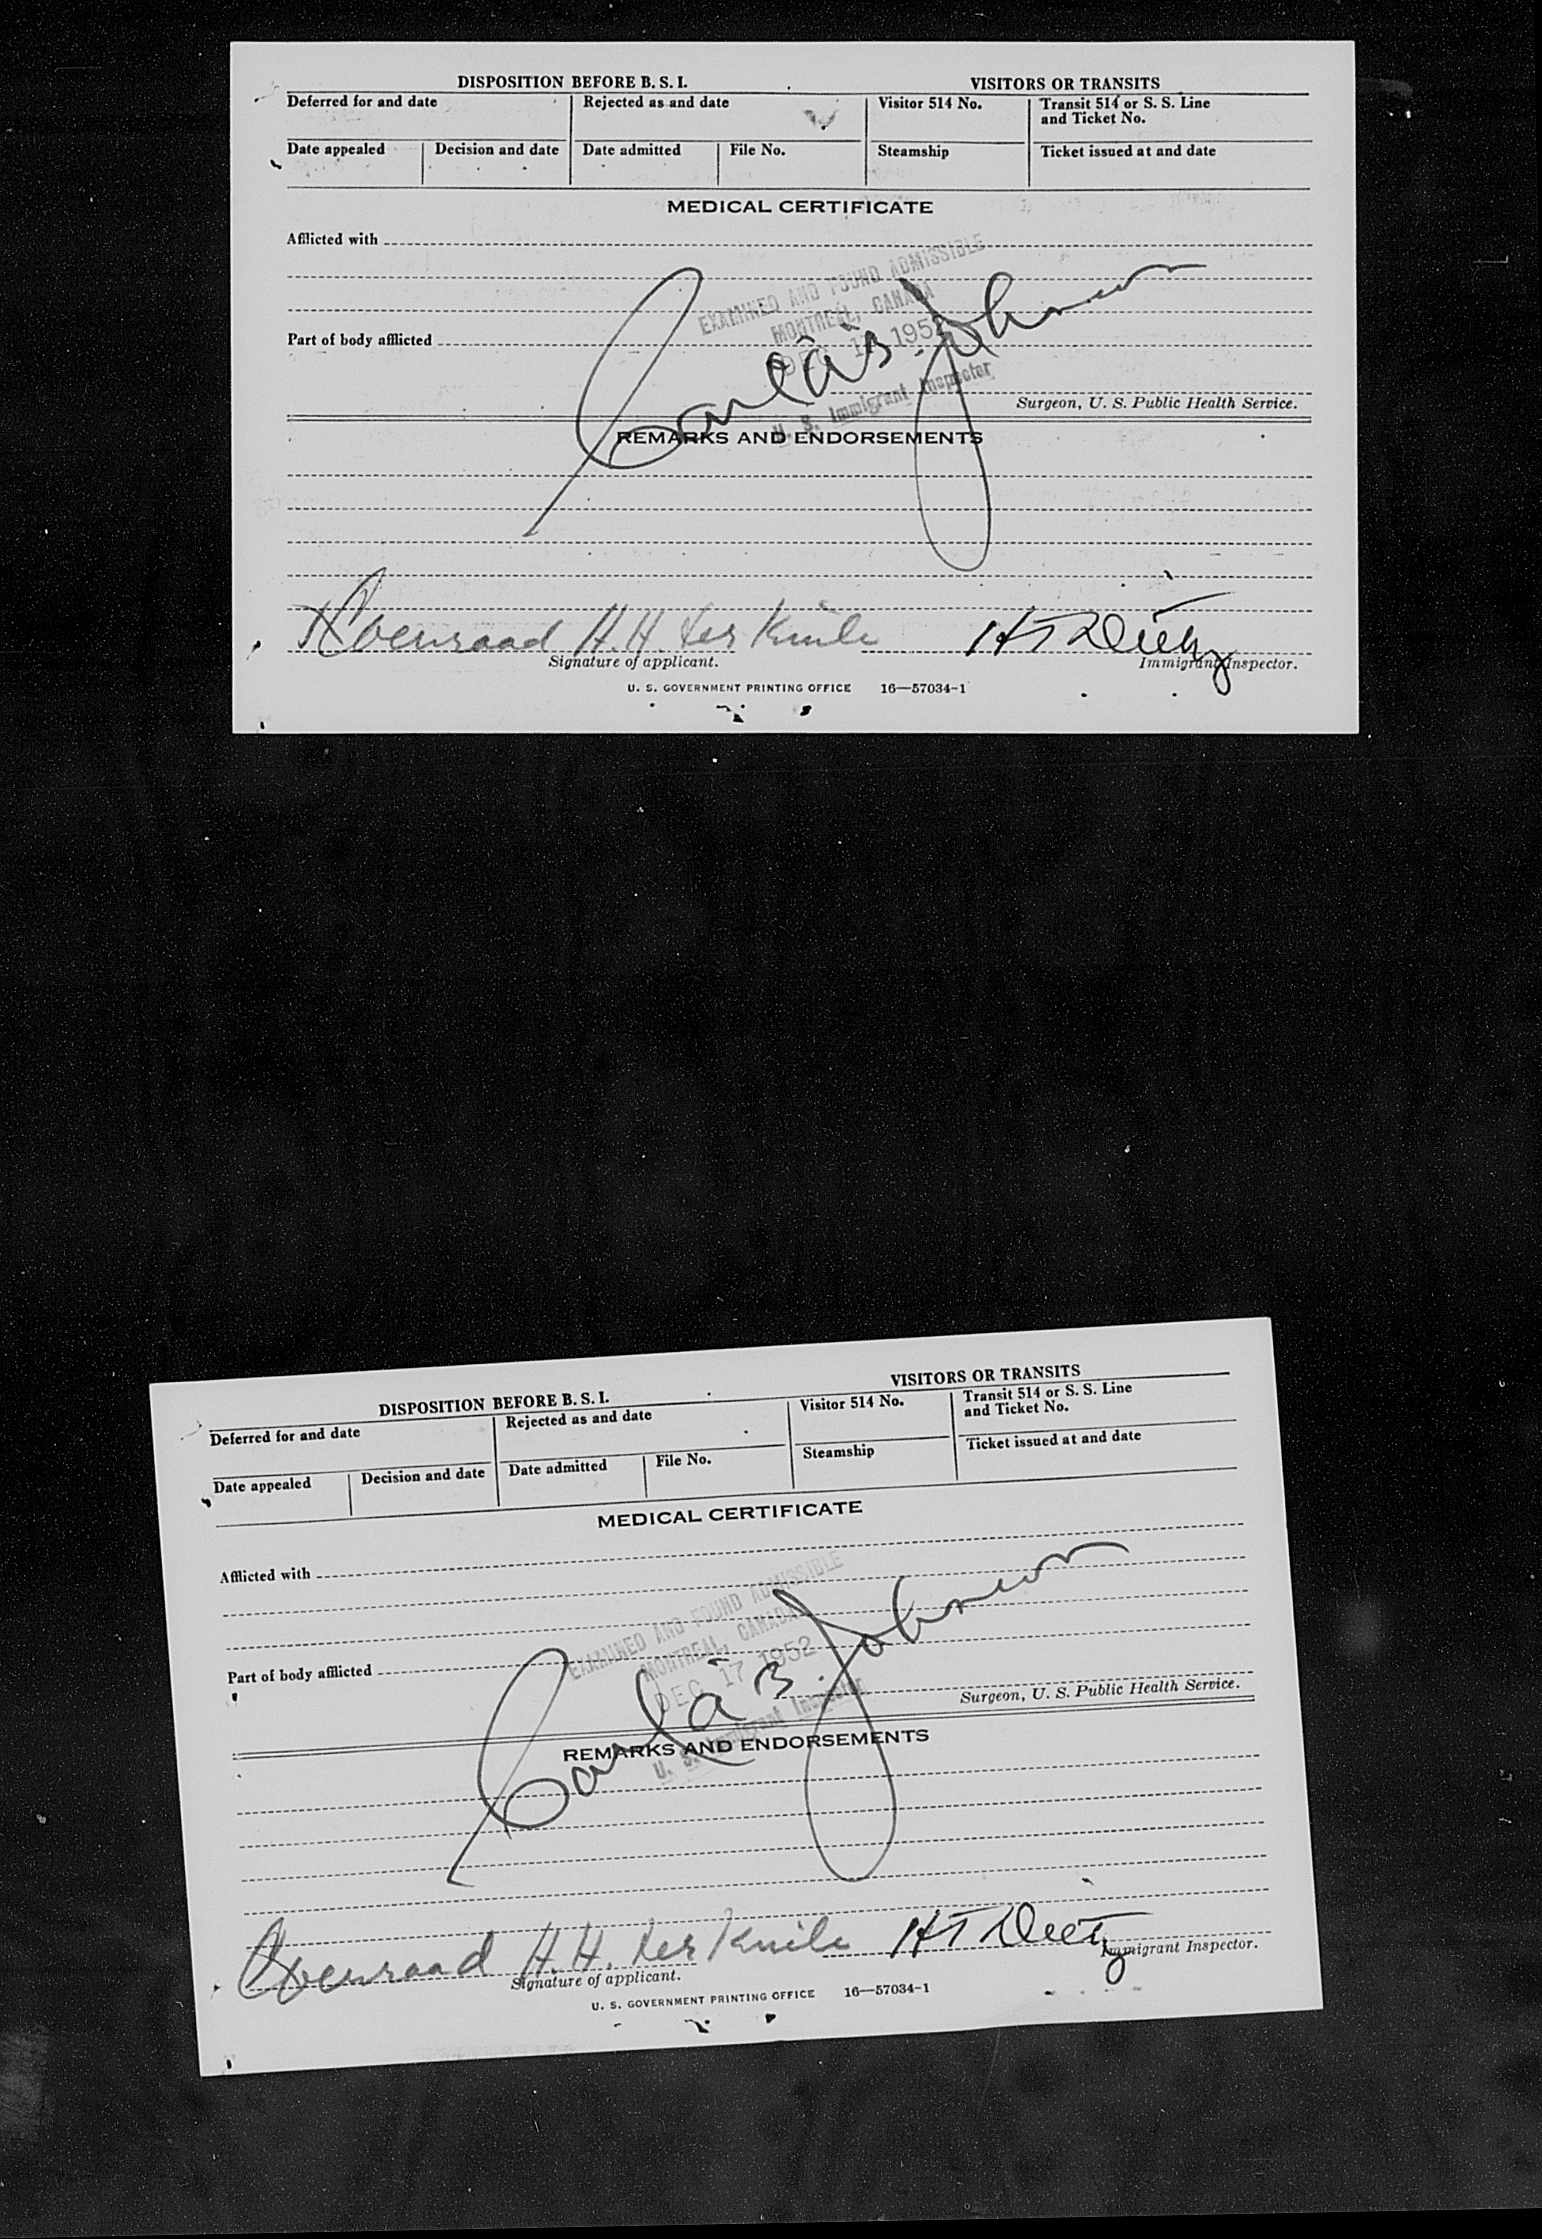 DISPOSITION BEFORE B. S. I. VISITORS OR TRANSITS
Deferred for and date Rejected as and date Visitor 514 No. Transit 514 or S. S. Line
and Ticket No.
Date appealed Decision and date Date admitted File No. Steamship Ticket issued at and date
MEDICAL CERTIFICATE
Afflicted with
EXAMINED AND FOUND ADMISSIBLE
MONTREAL, CANADA
Part of body afflicted
DEC 1952
Carl B. Johnson
U. S. Immigrant Inspector
Surgeon, U. S. Public Health Service.
REMARKS AND ENDORSEMENTS
Coenraad H. H. ter Kuile
Signature of applicant. Immigrant Inspector.
U. S. GOVERNMENT PRINTING OFFICE 16—57034-1
DISPOSITION BEFORE B. S. I. VISITORS OR TRANSITS
Deferred for and date Rejected as and date Visitor 514 No. Transit 514 or S. S. Line
and Ticket No.
Date appealed Decision and date Date admitted File No. Steamship Ticket issued at and date
MEDICAL CERTIFICATE
Afflicted with
EXAMINED AND FOUND ADMISSIBLE
MONTREAL, CANADA
Part of body afflicted
DEC 17 1952
Carl B. Johnson
U. S. Immigrant Inspector
Surgeon, U. S. Public Health Service.
REMARKS AND ENDORSEMENTS
Coenraad H. H. ter Kuile
Signature of applicant. Immigrant Inspector.
U. S. GOVERNMENT PRINTING OFFICE 16—57034-1